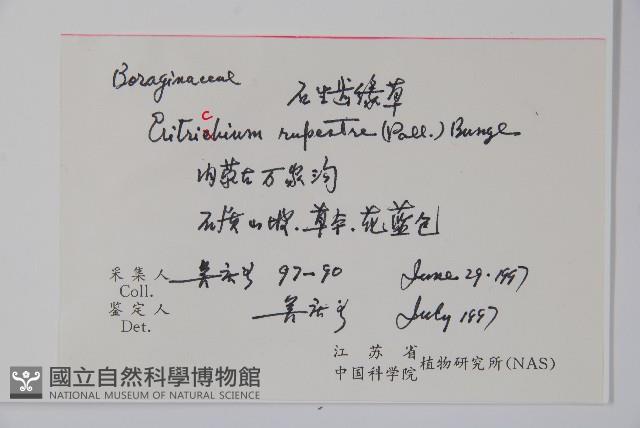 Boraginaceae
石生齿缘草
Eritrichium rupestre (Pall.) Bunge
c
内蒙古万家沟
石质山坡.草本.花蓝色
采集人 97-90 June 29.1997
Coll.
鉴定人 July 1997
Det.
江苏省
中国科学院 植物研究所(NAS)
國立自然科學博物館
NATIONAL MUSEUM OF NATURAL SCIENCE